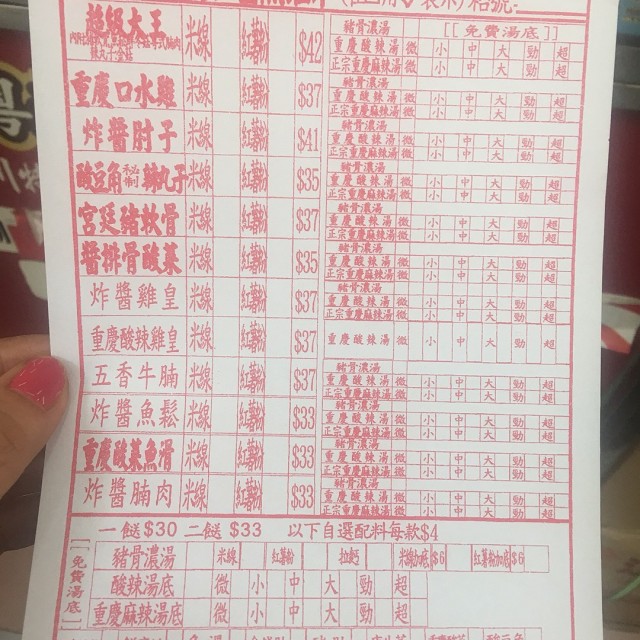 超級大王 米線 紅薯粉 $42 豬骨濃湯 [[免費湯底]]
重慶酸辣湯 微 小 中 大 勁 超
正宗重慶麻辣湯 微 小 中 大 勁 超
重慶口水雞 米線 紅薯粉 $37 豬骨濃湯
重慶酸辣湯 微 小 中 大 勁 超
正宗重慶麻辣湯 微 小 中 大 勁 超
炸醬肘子 米線 紅薯粉 $41 豬骨濃湯
重慶酸辣湯 微 小 中 大 勁 超
正宗重慶麻辣湯 微 小 中 大 勁 超
酸豆角秘制辣丸子 米線 紅薯粉 $35 豬骨濃湯
重慶酸辣湯 微 小 中 大 勁 超
正宗重慶麻辣湯 微 小 中 大 勁 超
宮廷豬軟骨 米線 紅薯粉 $37 豬骨濃湯
重慶酸辣湯 微 小 中 大 勁 超
正宗重慶麻辣湯 微 小 中 大 勁 超
醬排骨酸菜 米線 紅薯粉 $35 豬骨濃湯
重慶酸辣湯 微 小 中 大 勁 超
正宗重慶麻辣湯 微 小 中 大 勁 超
炸醬雞皇 米線 紅薯粉 $37 豬骨濃湯
重慶酸辣湯 微 小 中 大 勁 超
正宗重慶麻辣湯 微 小 中 大 勁 超
重慶酸辣雞皇 米線 紅薯粉 $37 重慶酸辣湯 微 小 中 大 勁 超
五香牛腩 米線 紅薯粉 $37 豬骨濃湯
重慶酸辣湯 微 小 中 大 勁 超
正宗重慶麻辣湯 微 小 中 大 勁 超
炸醬魚鬆 米線 紅薯粉 $33 豬骨濃湯
重慶酸辣湯 微 小 中 大 勁 超
正宗重慶麻辣湯 微 小 中 大 勁 超
重慶酸菜魚滑 米線 紅薯粉 $33 豬骨濃湯
重慶酸辣湯 微 小 中 大 勁 超
正宗重慶麻辣湯 微 小 中 大 勁 超
炸醬腩肉 米線 紅薯粉 $33 豬骨濃湯
重慶酸辣湯 微 小 中 大 勁 超
正宗重慶麻辣湯 微 小 中 大 勁 超
一餸$30 二餸$33 以下自選配料每款$4
[[免費湯底]]
豬骨濃湯 米線 紅薯粉 拉麵 米線加底$6 紅薯粉加底$6
酸辣湯底 微 小 中 大 勁 超
重慶麻辣湯底 微 小 中 大 勁 超